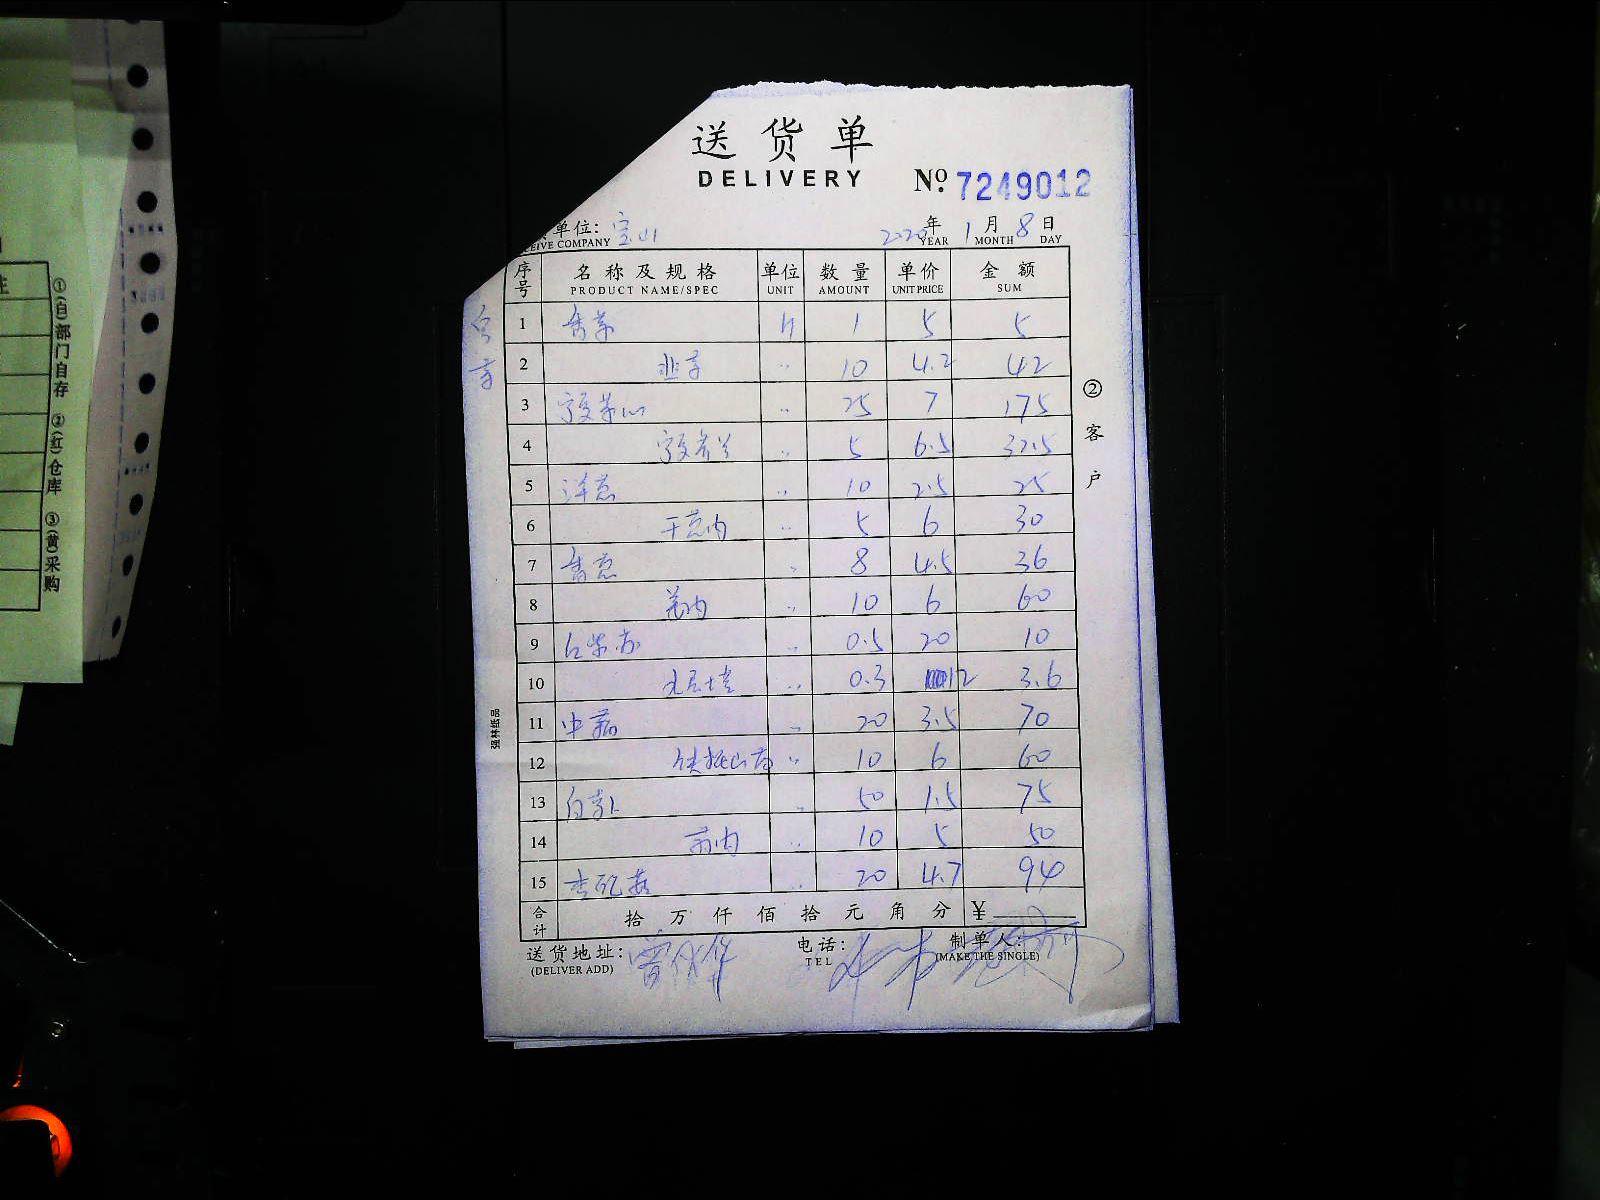 送货单
DELIVERY
No. 7249012
单位: 宝山 2020年 1月 8日
EIVE COMPANY YEAR MONTH DAY
序号 名称及规格 单位 数量 单价 金额
PRODUCT NAME/SPEC UNIT AMOUNT UNIT PRICE SUM
1 香菜 斤 1 5 5
2 韭菜 〃 10 4.2 42
3 宁夏菜心 〃 25 7 175
4 宁夏芥兰 〃 5 6.5 32.5
5 洋葱 〃 10 2.5 25
6 干葱肉 〃 5 6 30
7 香葱 〃 8 4.5 36
8 姜肉 〃 10 6 60
9 红紫苏 〃 0.5 20 10
10 〃 0.3 12 3.6
11 中菇 〃 20 3.5 70
12 铁棍山药 〃 10 6 60
13 白萝卜 〃 50 1.5 75
14 〃 10 5 50
15 杏鲍菇 〃 20 4.7 94
合计 拾 万 仟 佰 拾 元 角 分 ¥
送货地址: 电话: 制单人:
(DELIVER ADD) TEL (MAKE THE SINGLE)
②客户
强林纸品
①(白)部门自存 ②(红)仓库 ③(黄)采购